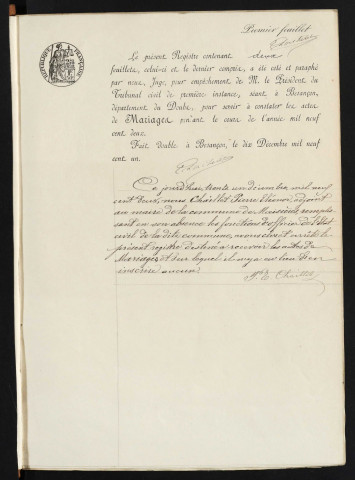 Premier feuillet
RÉPUBLIQUE FRANÇAISE
Le présent Registre contenant deux
feuillets, celui-ci et le dernier compris, a été coté et paraphé
par nous, Juge, pour empêchement de M. le Président du
Tribunal civil de première instance, séant à Besançon,
département du Doubs, pour servir à constater les actes
de Mariages pendant le cours de l'année mil neuf
cent deux.
Fait double à Besançon, le dix Décembre mil neuf
cent un.
Ce jourd'hui trente un décembre, mil neuf
cent deux, nous Chaillet Pierre Eléonor, adjoint
au maire de la commune de remplis
sant en son absence les fonctions d'officier de l'état
civil de la dite commune, avons clos et arrêté le
présent registre destiné à recevoir les actes de
Mariages et sur lequel il n'y a eu lieu d'en
inscrire aucun.
P. E. Chaillet